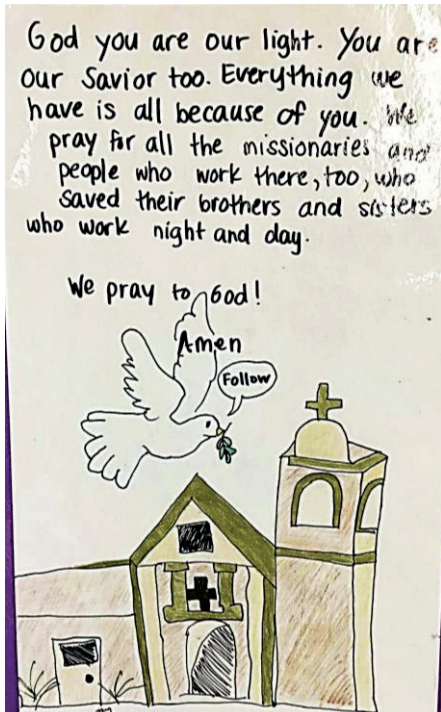 God you are our light. You are
our Savior too. Everything we
have is all because of you. We
pray for all the missionaries and
people who work there, too, who
saved their brothers and sisters
who work night and day.
We pray to God!
Amen
Follow